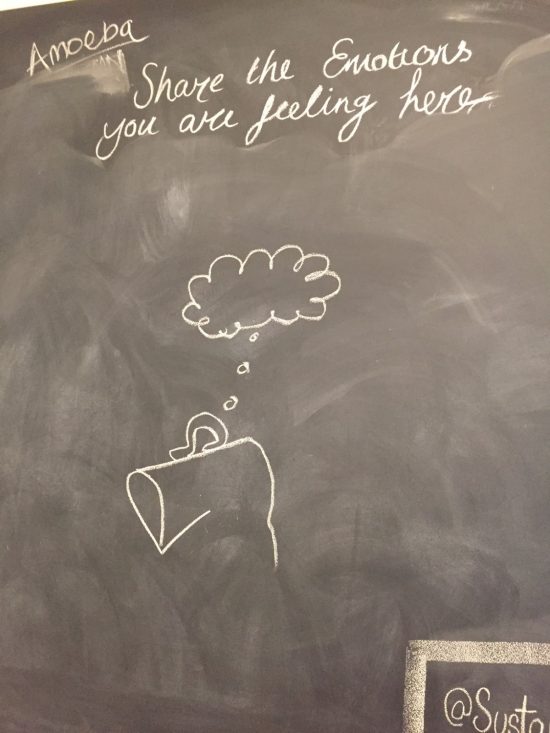 Amoeba
Share the Emotions
you are feeling here
@Susta